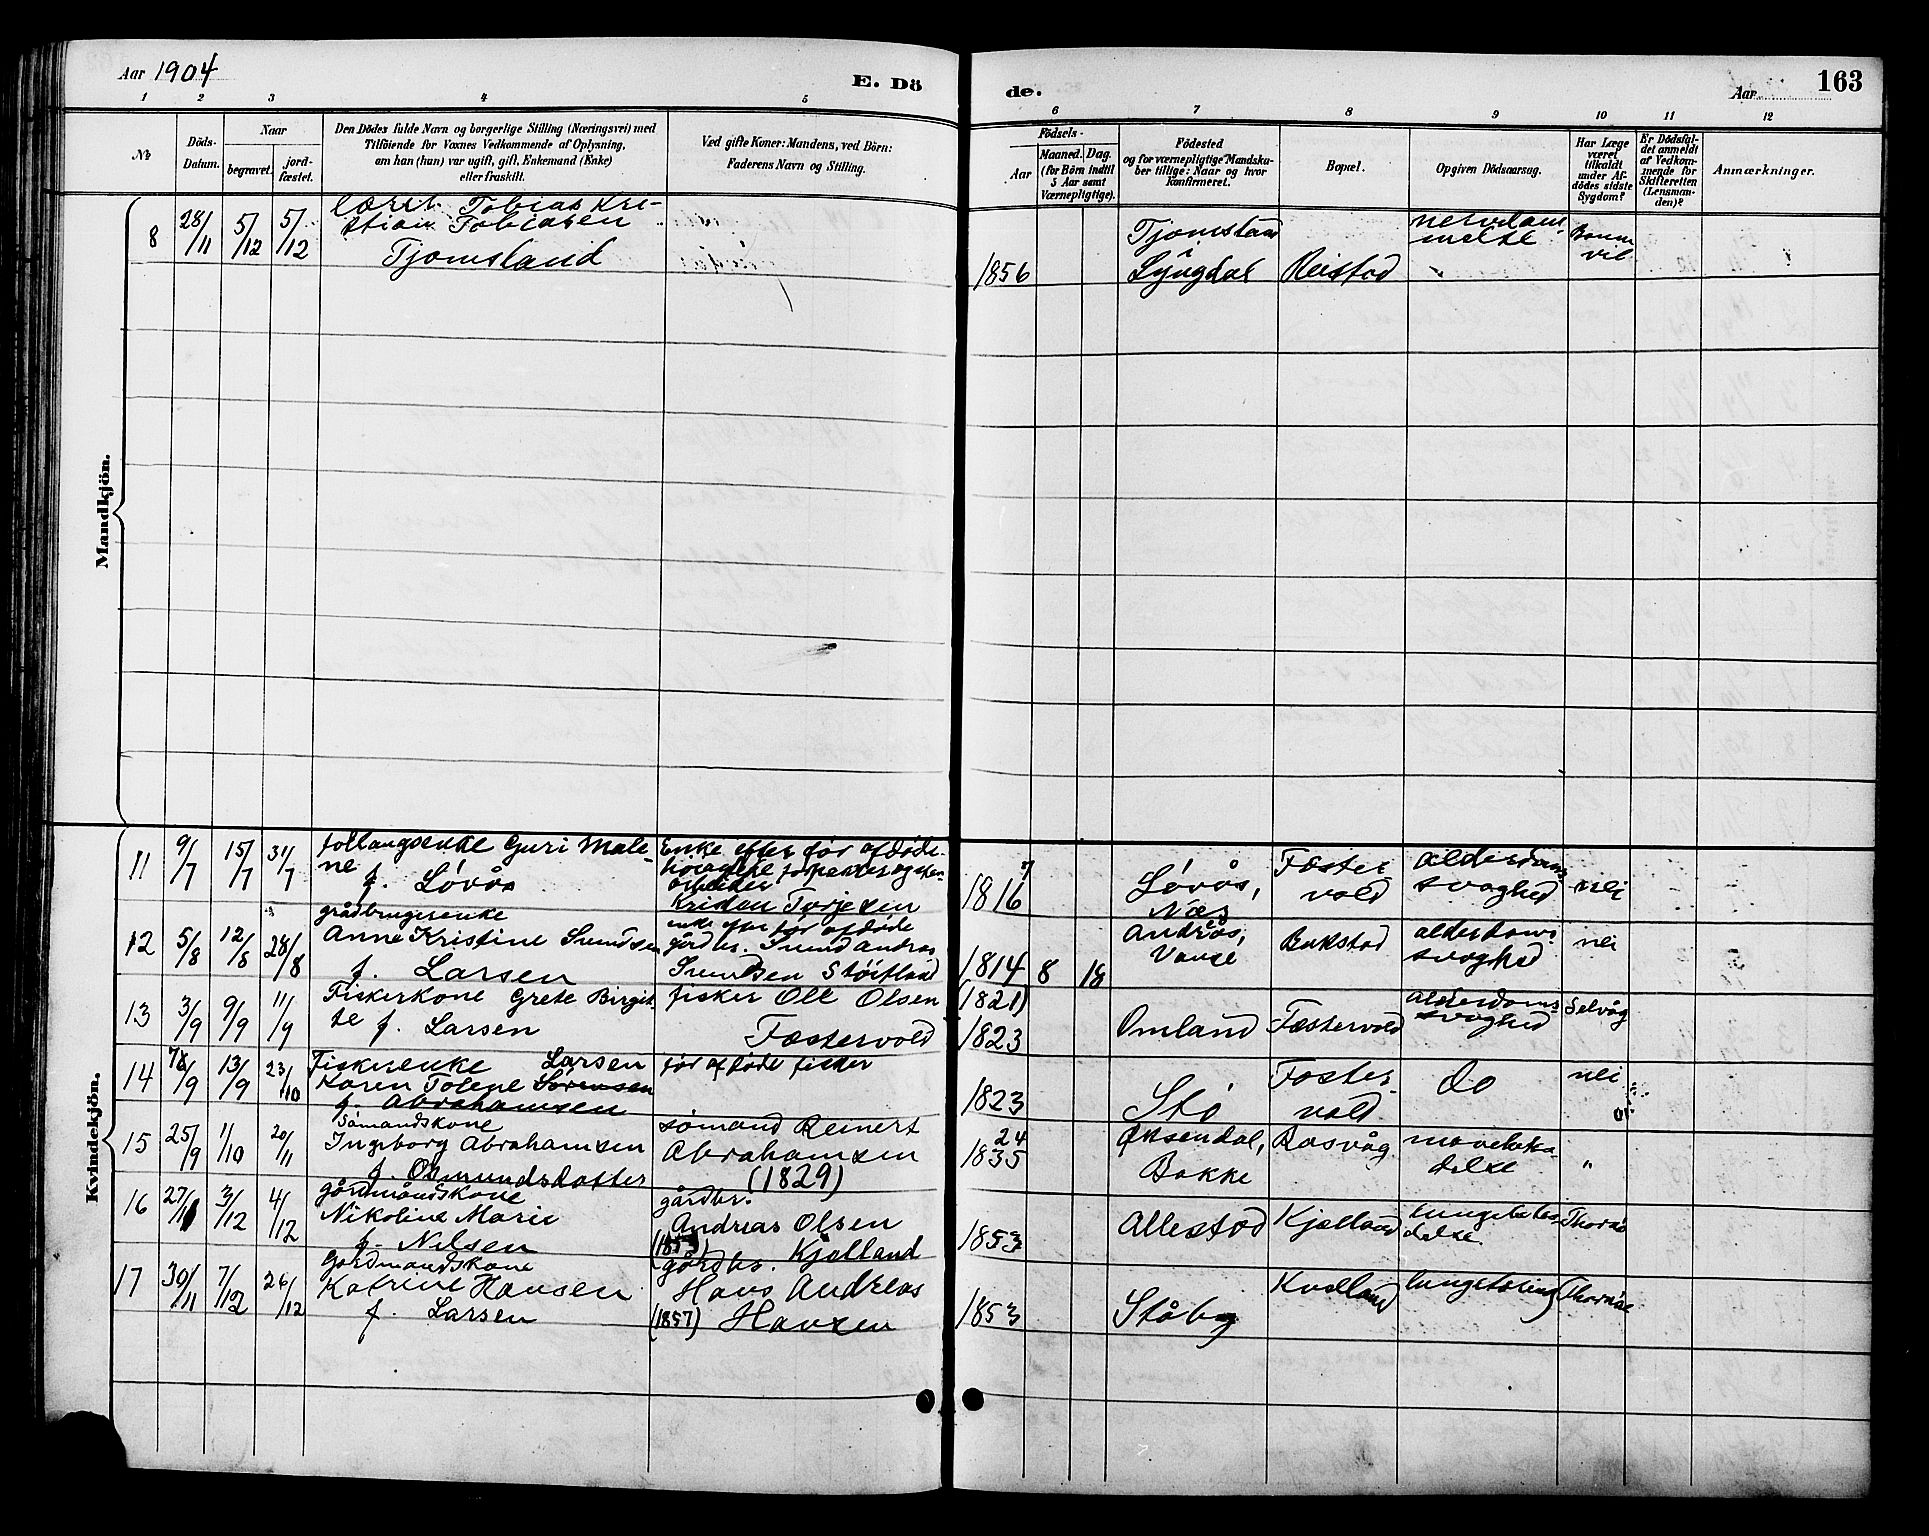 Aar 1904
E. Dö
de.
Aar
163
1 2 3 4 5 6 7 8 9 10 11 12
№
Döds-Datum.
Naar
begravet.
jord-fæstet.
Den Dödes fulde Navn og borgerlige Stilling (Næringsvei) med
Tilföiende for Voxnes Vedkommende af Oplysning,
om han (hun) var ugift, gift, Enkemand (Enke)
eller fraskilt.
Ved gifte Koner: Mandens, ved Börn:
Faderens Navn og Stilling.
Födsels-
Aar
Maaned. Dag.
(for Börn indtil
5 Aar samt
Værnepligtige).
Födested
og for værnepligtige Mandska-
ber tillige: Naar og hvor
konfirmeret.
Bopæl.
Opgiven Dödsaarsag.
Har Læge
været
tilkaldt
under Af-
dödes sidste
Sygdom?
Er Dödsfal-
det anmeldt
af Vedkom-
mende for
Skifteretten
(Lensman-
den)?
Anmærkninger.
Mandkjön.
8 28/11 5/12 5/12
Tobias Kri-
stian Tobiasen
Tjomsland
1856
Lyngdal
Reistad
Kvindekjön.
11 9/7 15/7 31/7
Guri Male-
ne
f. Lövås
Enke efter för afdöde
arbeider
Kristen Torjesen
1816 7
Lövås,
Næs
Foster
vold
alderdoms
svaghed
nei
12 5/8 12/8 28/8
Anne Kristine Svendsen
f. Larsen
enke efter för afdöde
gårdbr. Svend Andreas
Svendsen
1814 8 18
Vanse
Bakstad
alderdoms
svaghed
nei
13 3/9 9/9 11/9
Fiskerkone Grete Birgit-
te f. Larsen
fisker Ole Olsen
Fostervold
(1821)
1823
Omland
Fostervold
alderdoms
svaghed
Selvåg
14 13/9 23/10
Fiskerenke Larsen
Karen Tolene Sörensen
f. Abrahamsen
för afdöde fisker
1823
Stö
Foster
vold
do
nei
15 25/9 1/10 20/11
Sömandskone
Ingeborg Abrahamsen
f. Osmundsdatter
sömand Reinert
Abrahamsen
(1829)
24
1835
Öksendal,
Bakke
Rasvåg
"
16 27/11 3/12 4/12
gårdmandskone
Nikoline Marie
f. Nilsen
gårdbr.
Andreas Olsen
(1853) Kjelland
1853
Allestad
Kjelland
Thornöe
17 30/11 7/12 26/12
Gårdmandskone
Katrine Hansen
f. Larsen
gårdbr.
Hans Andreas
(1857) Hansen
1853
Ståby
Kvelland
Thornöe